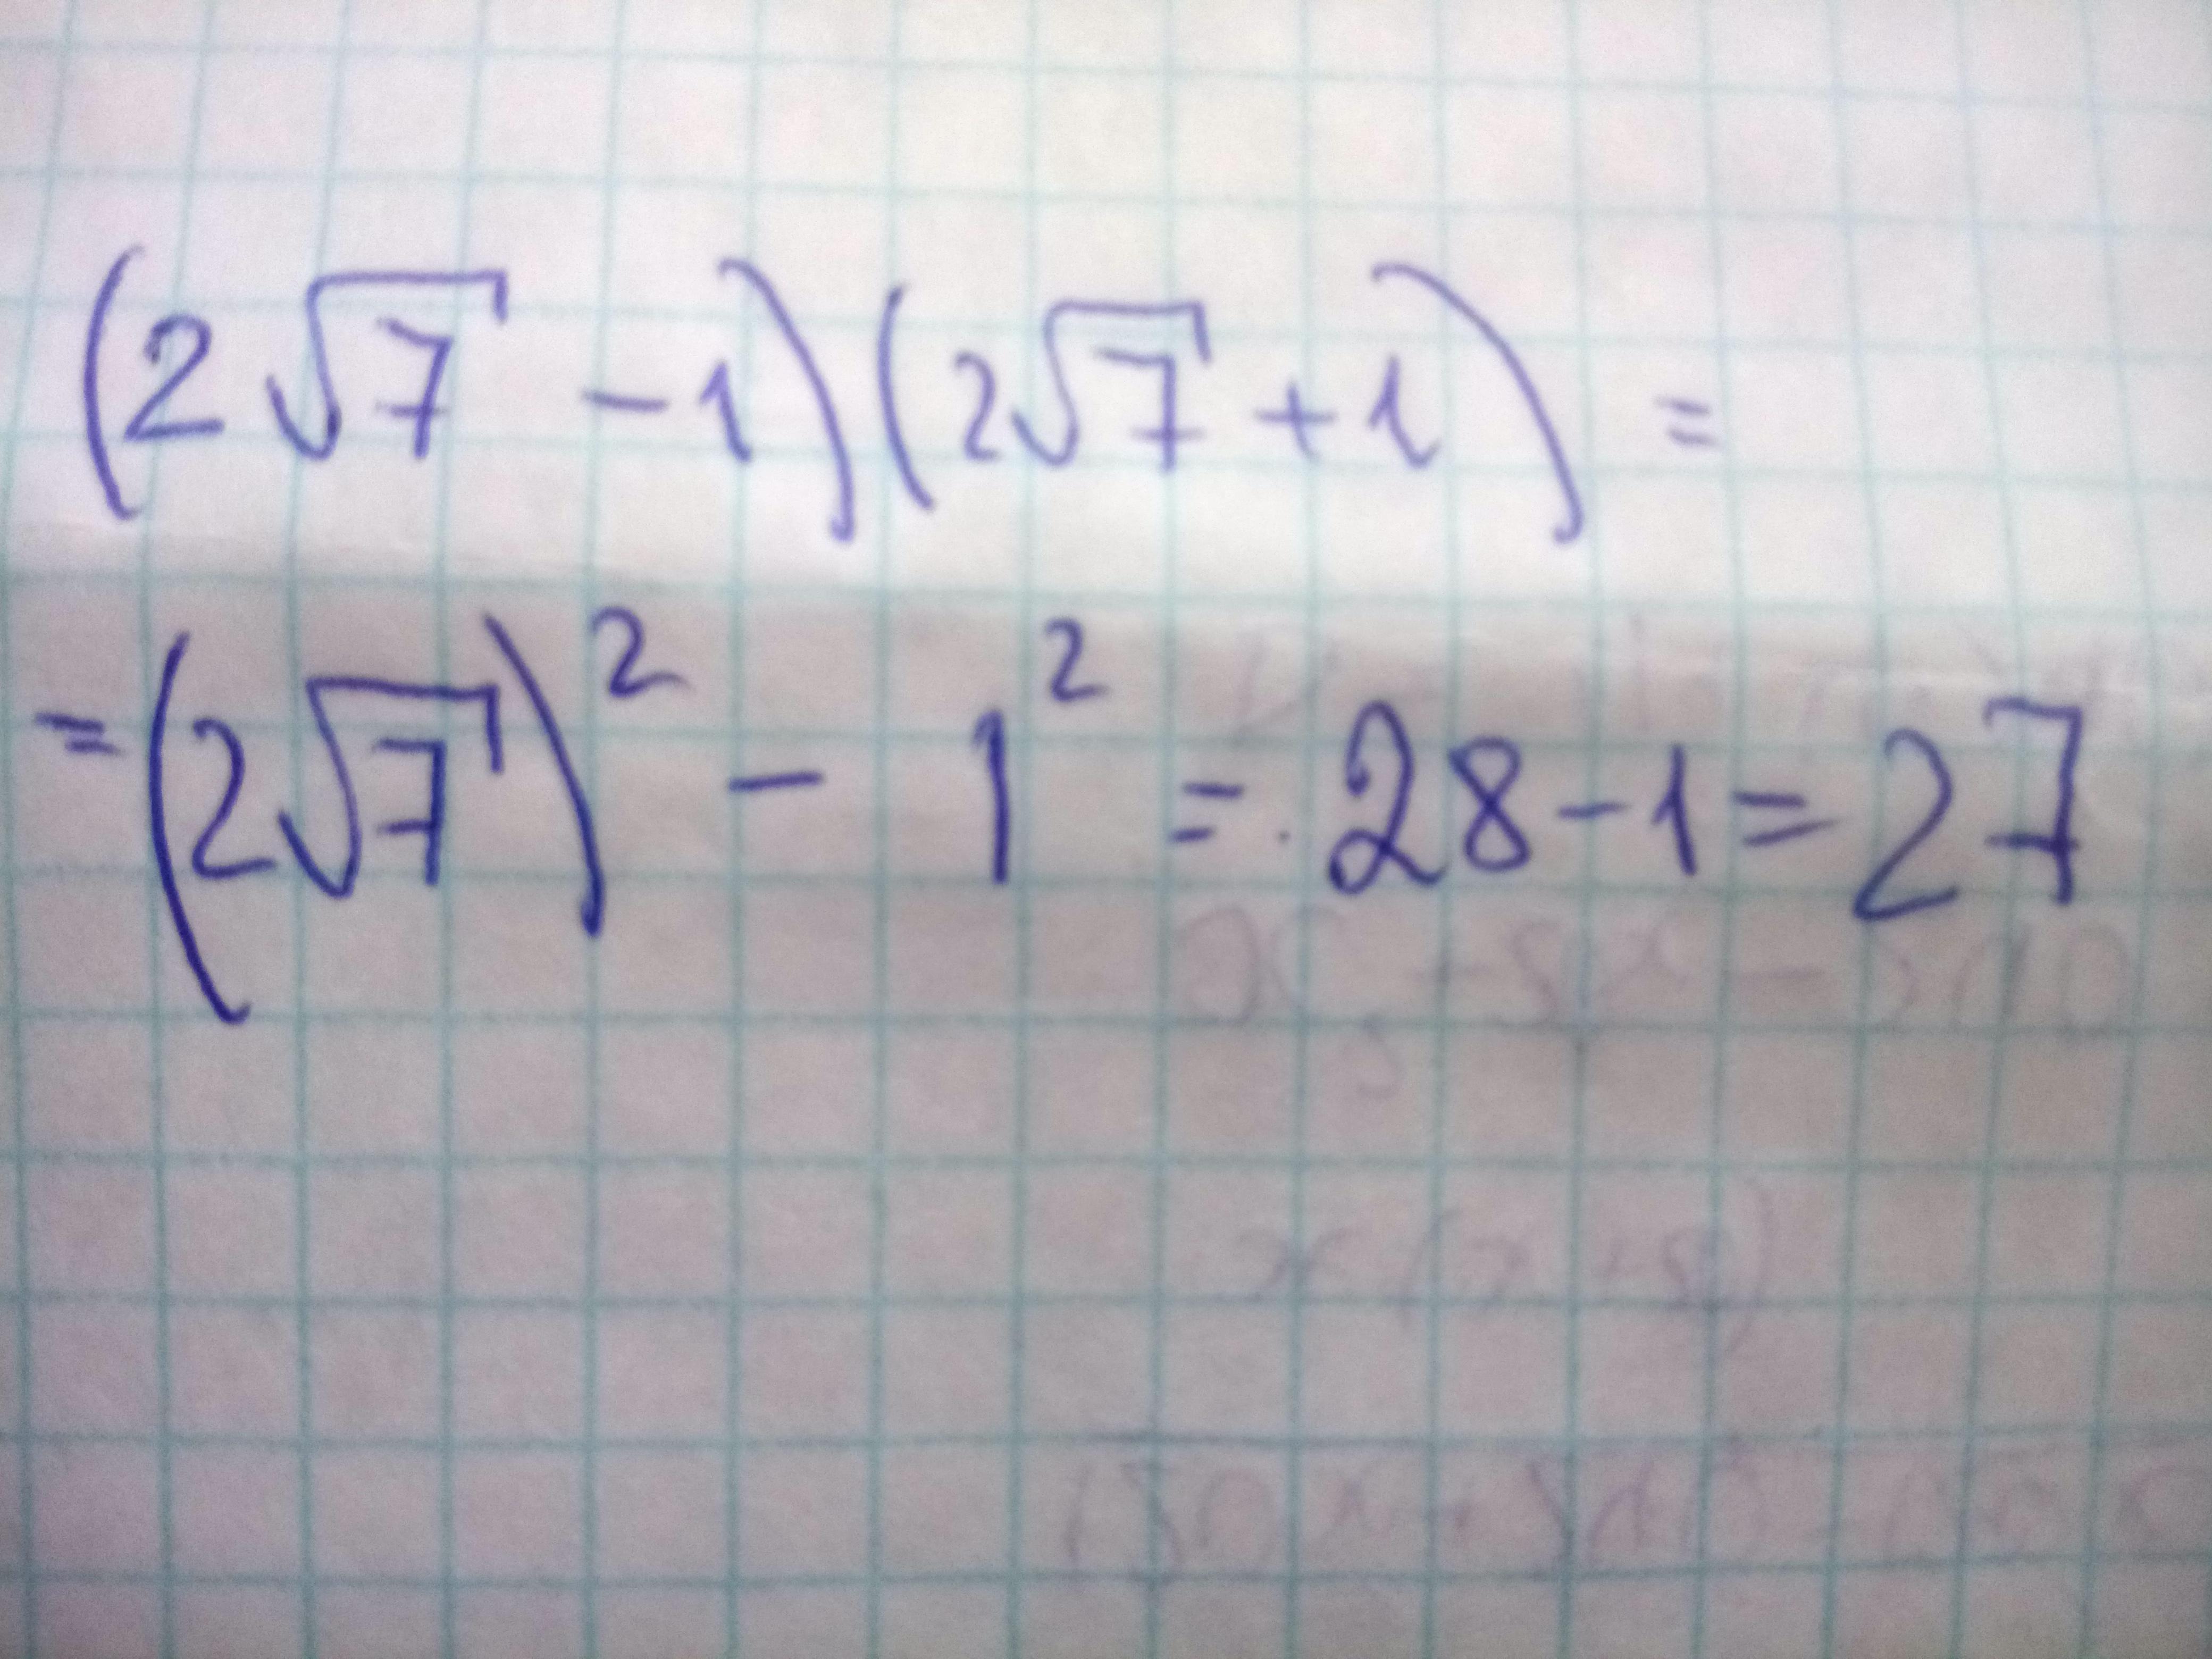 (2√7 - 1)(2√7 + 1) =
= (2√7)² - 1² = 28 - 1 = 27